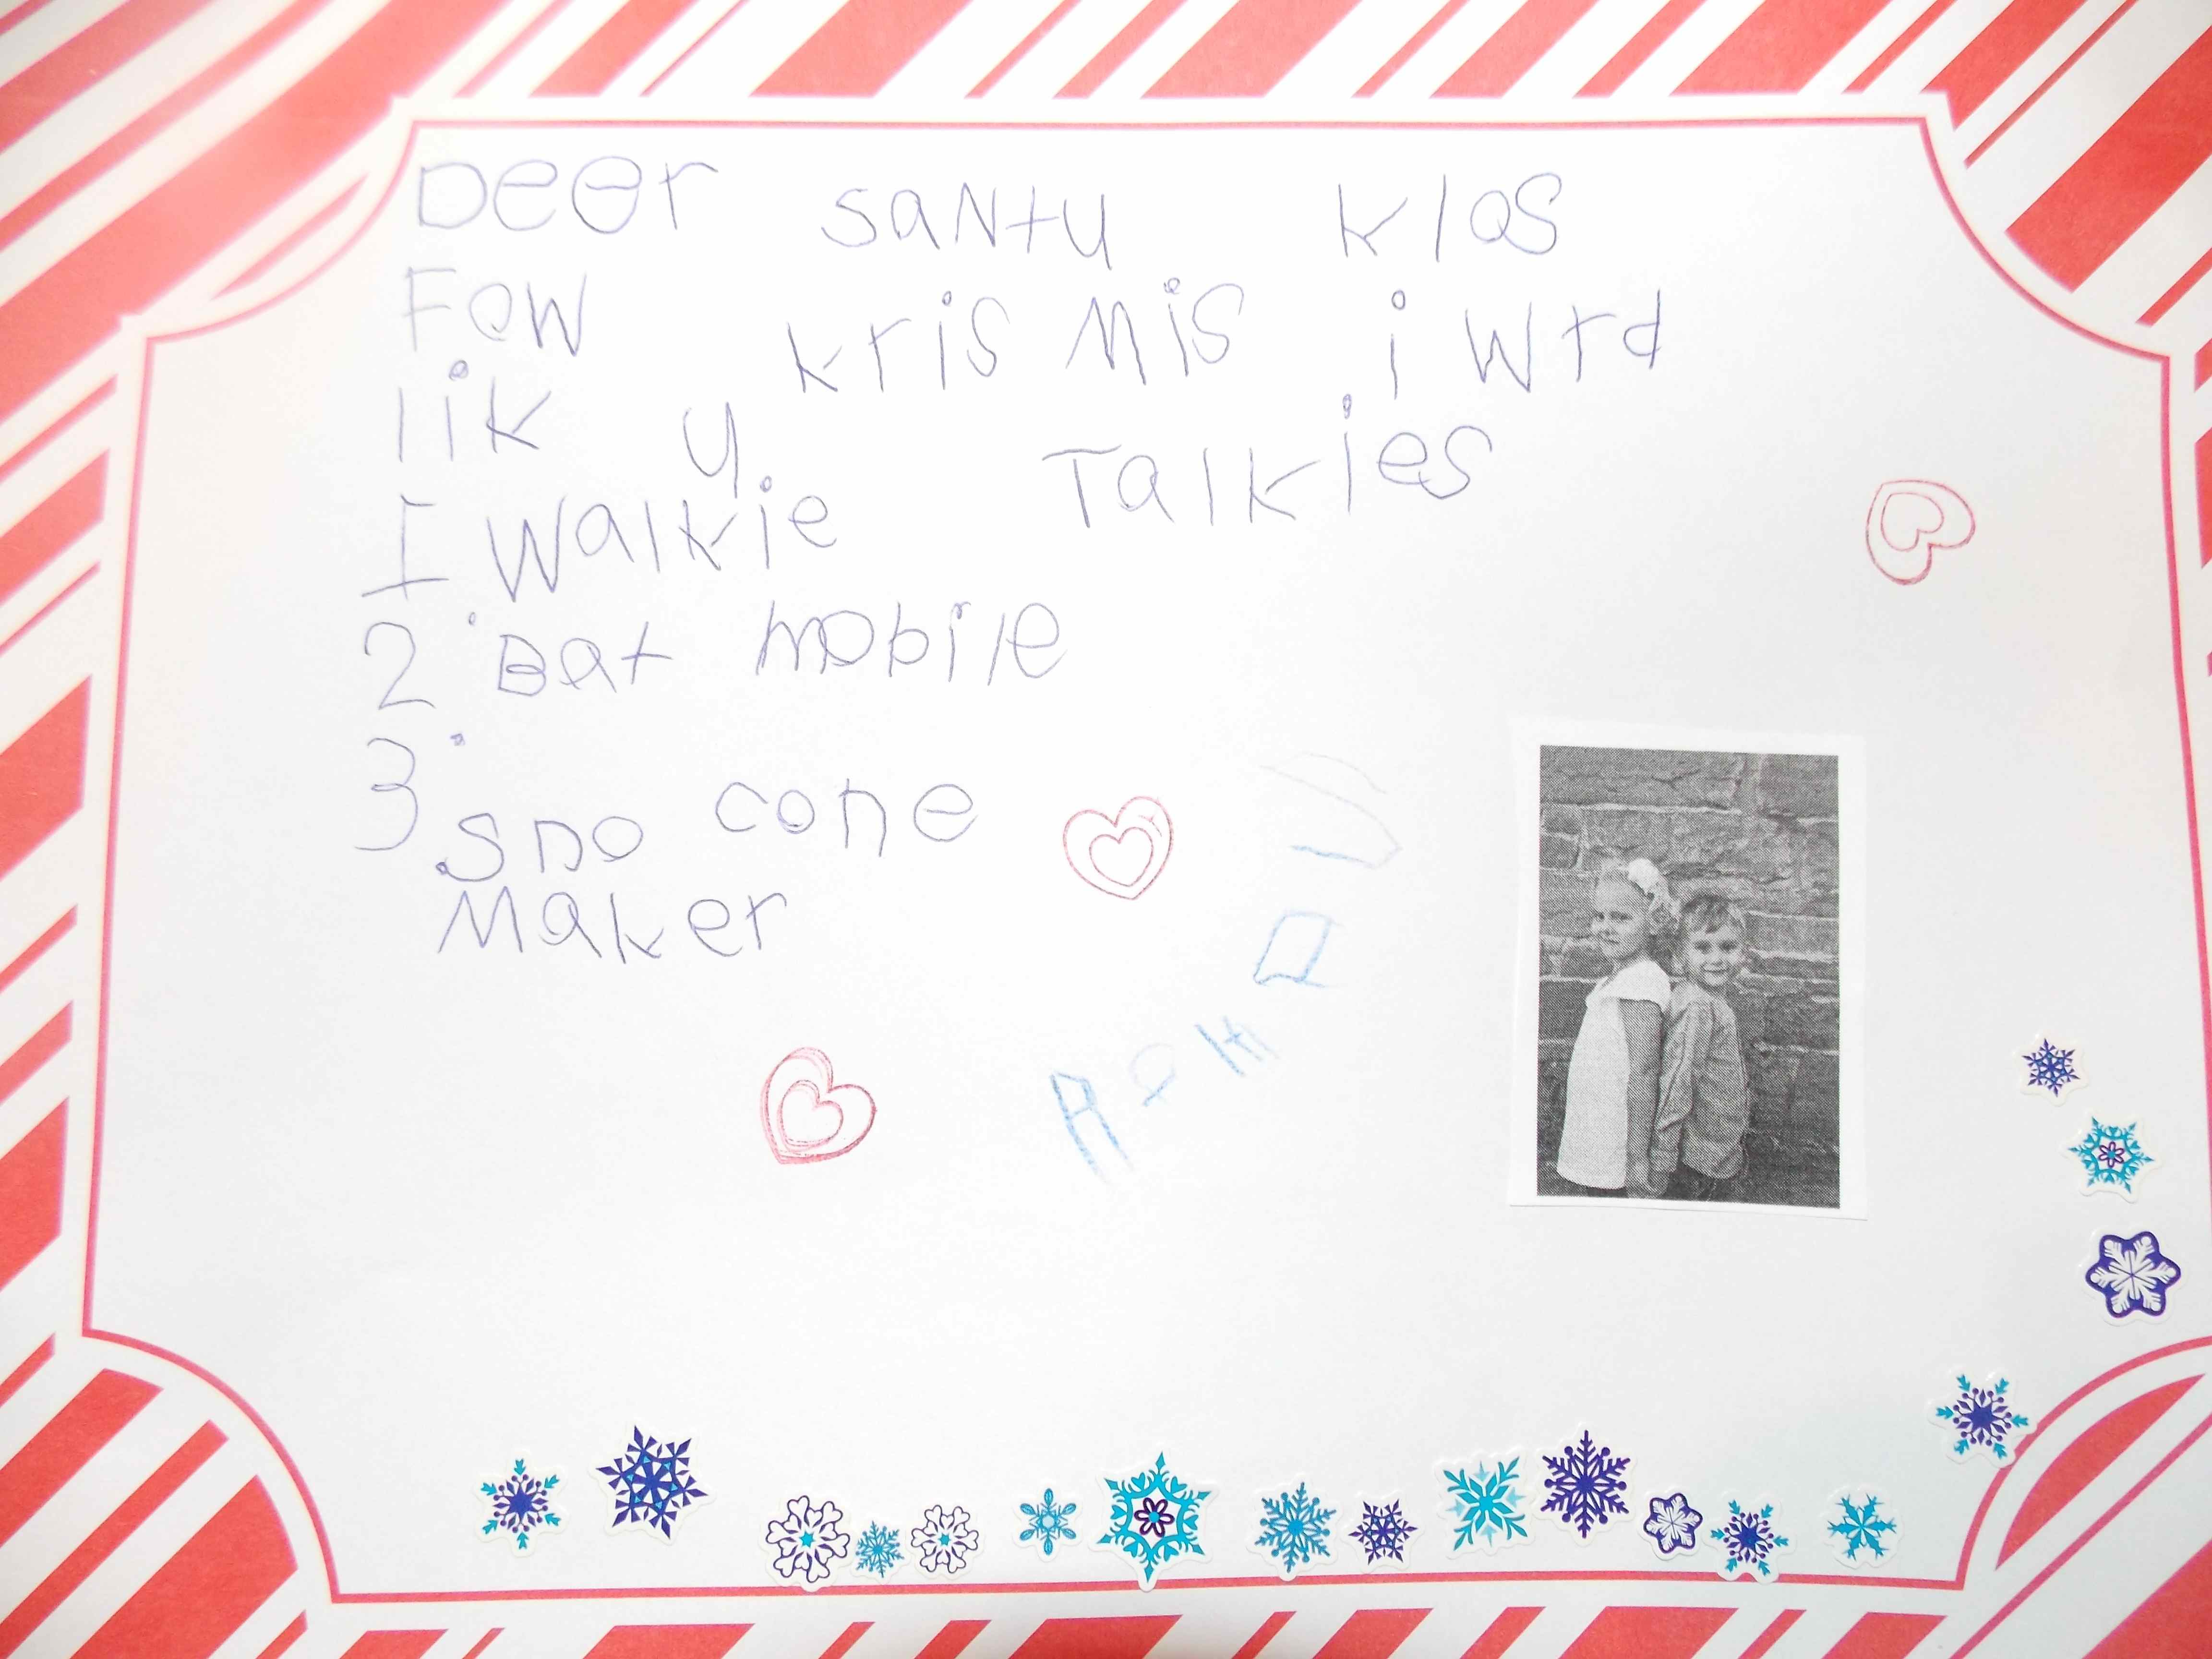 Deer santu klos
Fow krismis i wrd
lik y.
1 Walkie Talkies
2. Bat mobile
3. sno cone
Maker